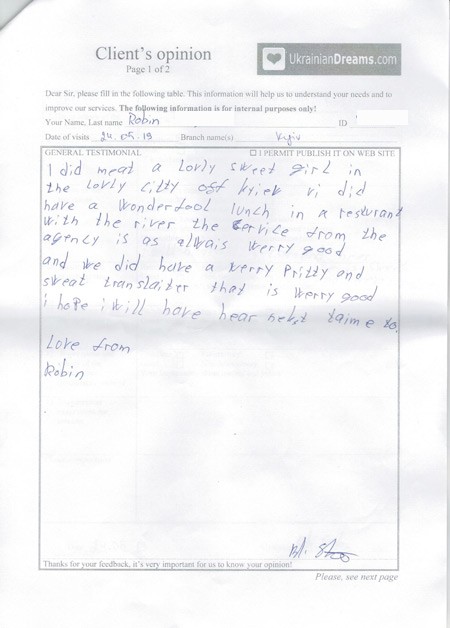 Client's opinion
Page 1 of 2
UkrainianDreams.com
Dear Sir, please fill in the following table. This information will help us to understand your needs and to
improve our services. The following information is for internal purposes only!
Your Name, Last name Robin ID
Date of visits 24.05.19 Branch name(s) Kyiv
GENERAL TESTIMONIAL ☐ I PERMIT PUBLISH IT ON WEB SITE
I did meat a lovly sweet girl in
the lovly citty off kyiev vi did
have a wonderfool lunch in a resturant
with the river the service from the
agency is as alwais werry good
and we did have a verry pritty and
sweat translaiter that is werry good
i hope i will have hear next taime to.
Love from
Robin
Thanks for your feedback, it's very important for us to know your opinion!
Please, see next page